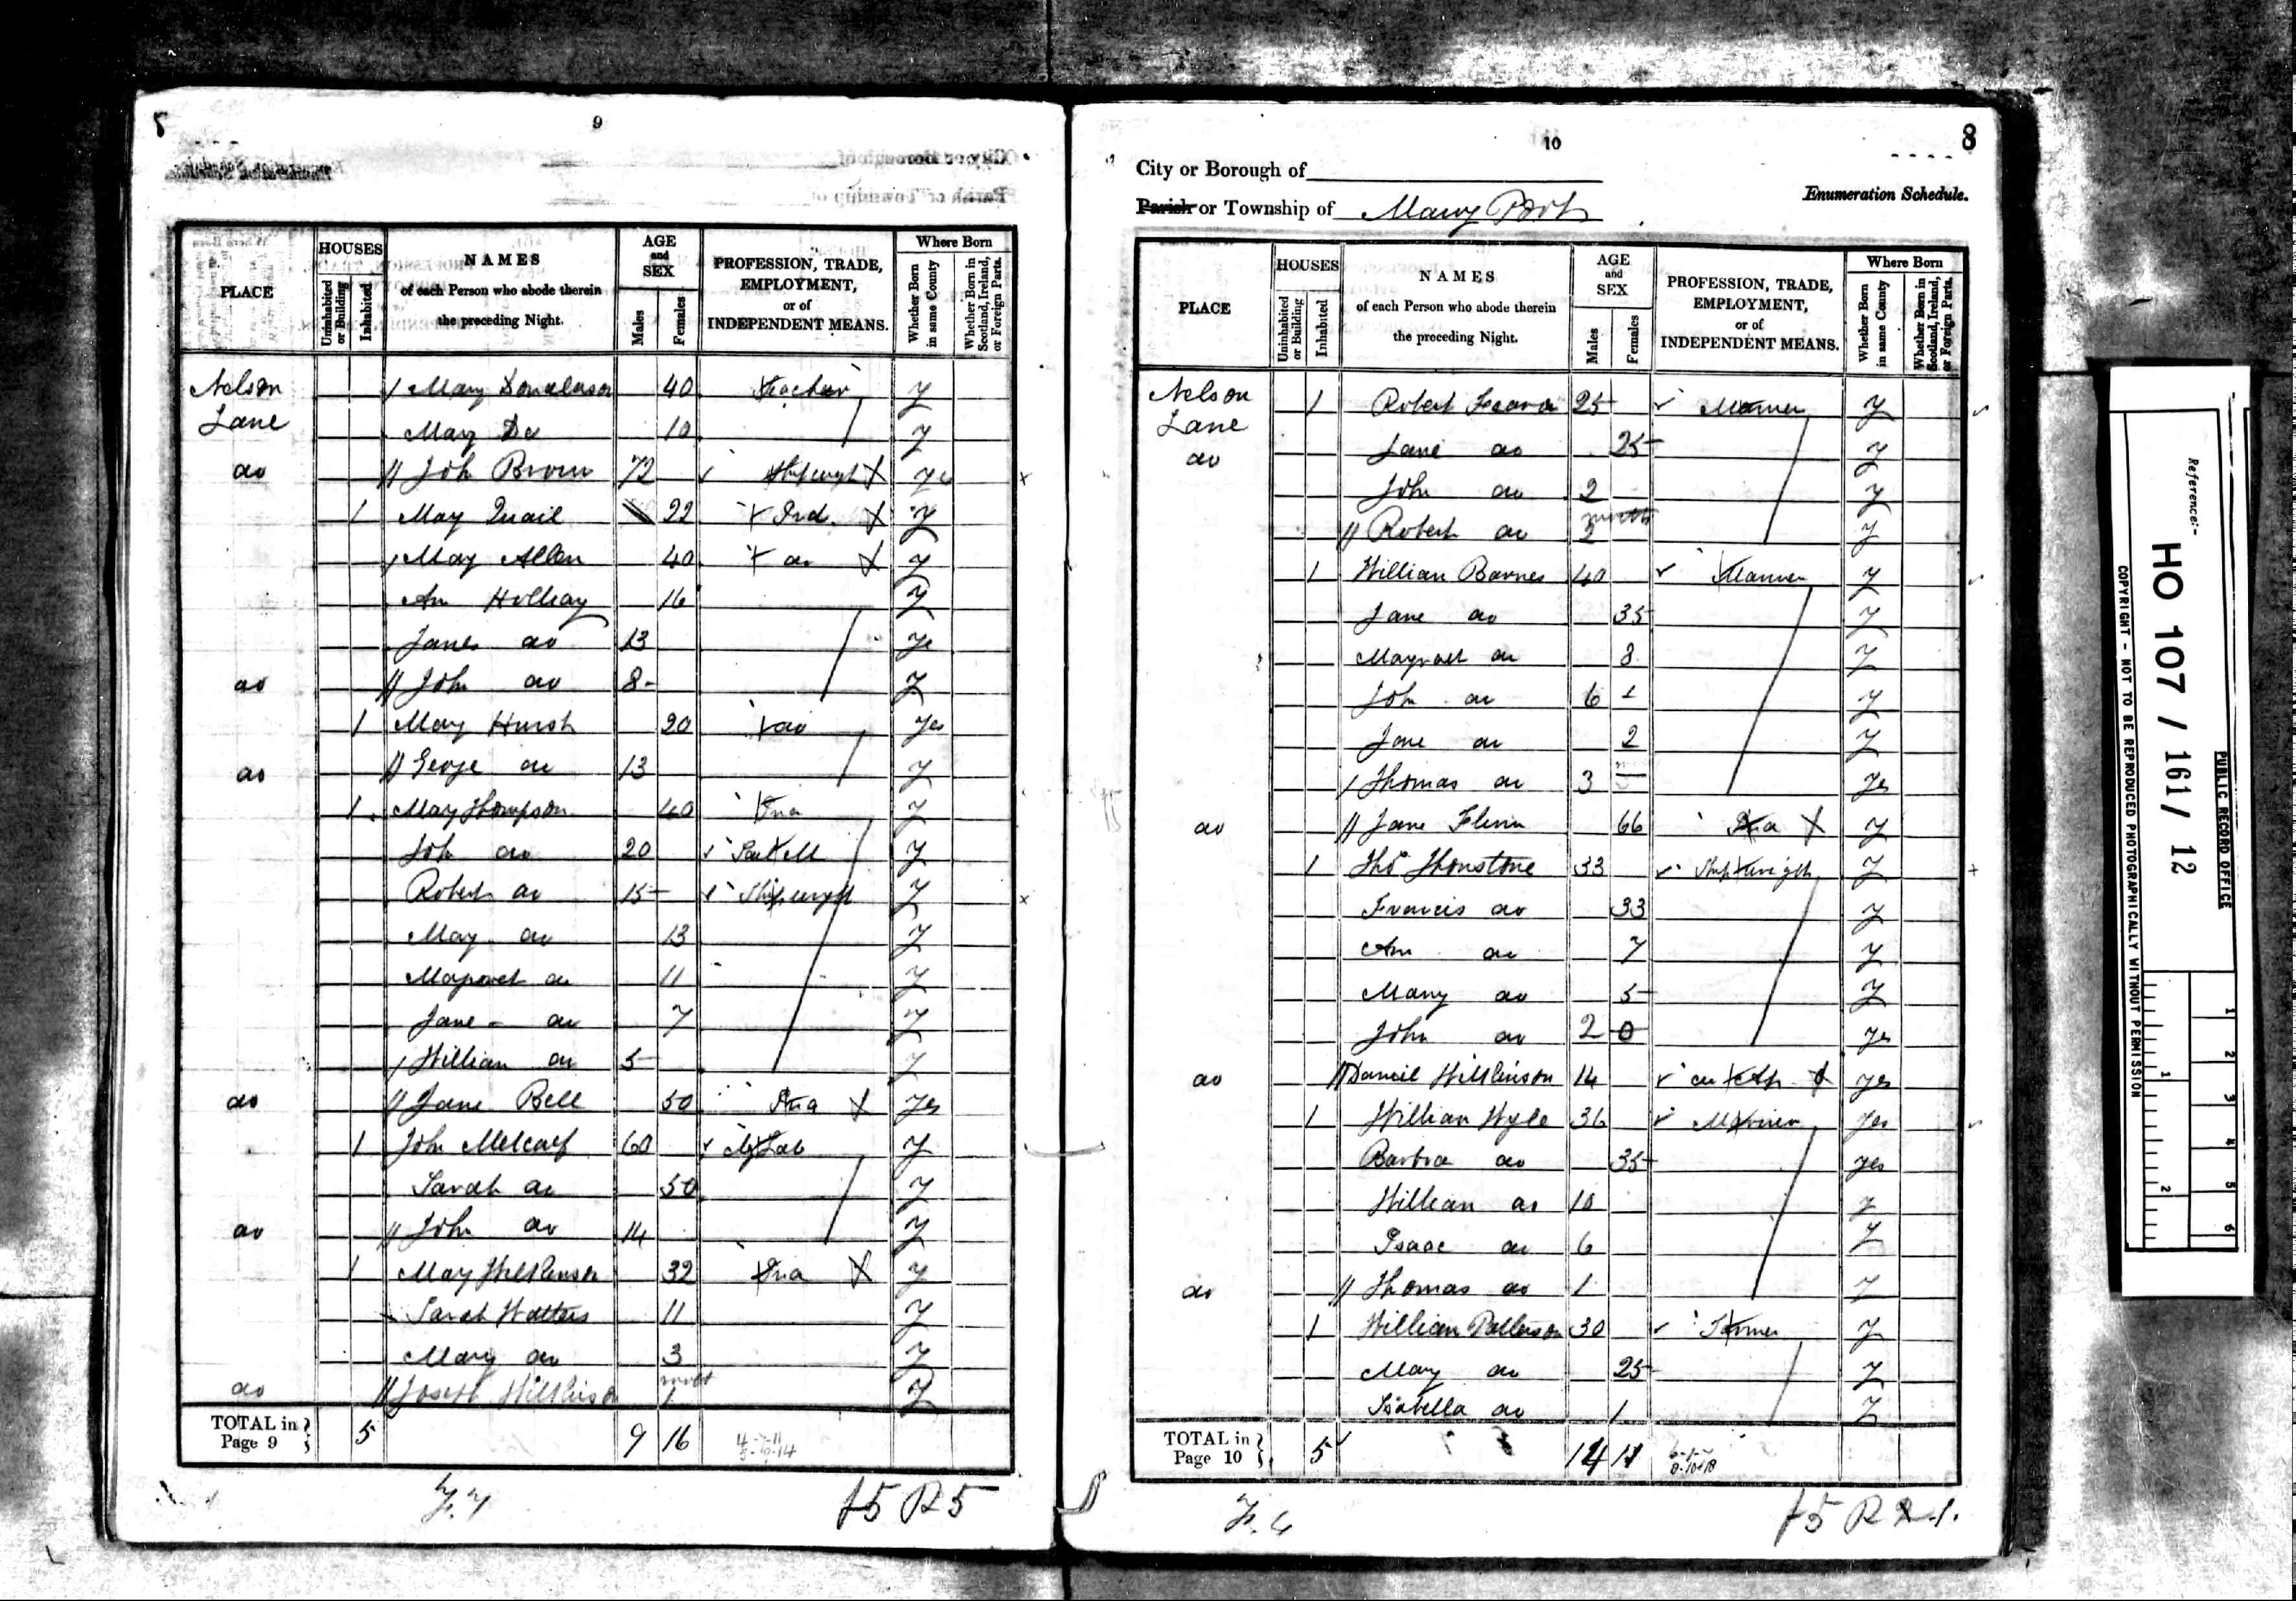 9
PLACE HOUSES NAMES AGE and SEX PROFESSION, TRADE, EMPLOYMENT, or of INDEPENDENT MEANS. Where Born
Uninhabited or Building Inhabited of each Person who abode therein the preceding Night. Males Females Whether Born in same County Whether Born in Scotland, Ireland, or Foreign Parts.
Nelson Mary Donaldson 40 Teacher Y
Lane Mary Do 10 Y
do Joh Brown 72 Yes
1 Mary Quail 22 Ind. Y
Mary Allen 40 do Y
Ann 16 Y
James do 13 Ye
do John do 8 Y
1 Mary Hursh 20 do Yes
do George do 13 Y
1 Mary Thompson 40 Y
Joh do 20 Y
Robert do 15 Shipwright Y
Mary do 13 Y
Margaret do 11 Y
Jane do 7 Y
William do 5 Y
do Jane Bell 50 Yes
1 John Metcalf 60 Ag Lab Y
Sarah do 50 Y
do John do 14 Y
1 Mary Wilkinson 32 Y
Sarah Watters 11 Y
Mary do 3 Y
do Joseph Wilkinson 1 Y
TOTAL in Page 9 5 9 16
F. 7 J5 R5
10
8
City or Borough of
Parish or Township of Mary Port
Enumeration Schedule.
PLACE HOUSES NAMES AGE and SEX PROFESSION, TRADE, EMPLOYMENT, or of INDEPENDENT MEANS. Where Born
Uninhabited or Building Inhabited of each Person who abode therein the preceding Night. Males Females Whether Born in same County Whether Born in Scotland, Ireland, or Foreign Parts.
Nelson 1 Robert 25 Mariner Y
Lane Jane do 25 Y
do John do 2 Y
Robert do 2 months Y
1 William Barnes 40 Mariner Y
Jane do 35 Y
Margaret do 8 Y
John do 6 Y
Jane do 2 Y
Thomas do 3 Yes
do Jane 66 Y
1 Thos Thonstone 33 Shipwright Y
Francis do 33 Y
Ann do 7 Y
Mary do 5 Y
John do 2 0 Yes
do Daniel Wilkinson 14 do Ap Yes
1 William Wyle 36 Mariner Yes
Barbra do 35 Yes
William do 10 Y
Isaac do 6 Y
do Thomas do 1 Y
1 William Patterson 30 Y
Mary do 25 Y
Isabella do 1 Y
TOTAL in Page 10 5 14 11
J5
Reference:-
HO 107 / 161 / 12
PUBLIC RECORD OFFICE
COPYRIGHT - NOT TO BE REPRODUCED PHOTOGRAPHICALLY WITHOUT PERMISSION
1 2 3 4 5 6
1 2